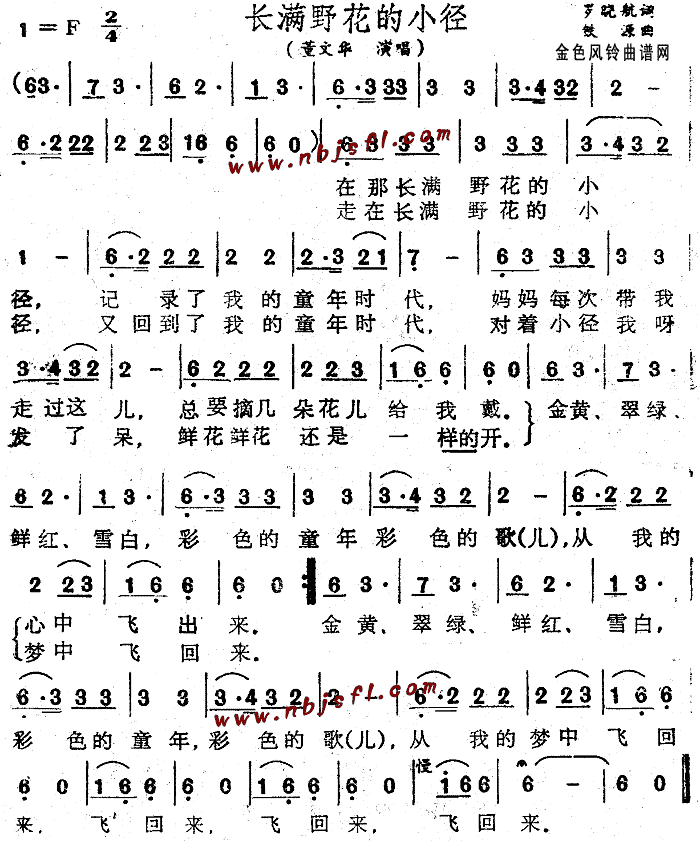 长满野花的小径
1 = F 2/4
(董文华 演唱)
罗晓航词
铁源曲
金色风铃曲谱网
(63· | 7 3· | 6 2· | 1 3· | 6·333 | 3 3 | 3·432 | 2 – |
6·222 | 2 223 | 166 | 6 6 0) | 63 33 | 3 33 | 3·432 |
www.nbjsfl.com
在那长满 野花的 小
走在长满 野花的 小
1 – | 6·2 22 | 2 2 | 2·3 21 | 7 – | 63 33 | 3 3 |
径, 记 录了我的童年时代, 妈妈每次带我
径, 又回到了我的童年时代, 对着小径我呀
3·432 | 2 – | 6222 | 2 23 | 166 | 6 0 | 63· | 7 3· |
走过这 儿, 总要摘几 朵花儿 给 我 戴. 金黄、翠绿、
发 了 呆, 鲜花鲜花 还是 一 样的开.
6 2· | 1 3· | 6·3 33 | 3 3 | 3·4 32 | 2 – | 6·2 22 |
鲜红、雪白, 彩 色的 童 年 彩 色的 歌(儿),从 我的
2 223 | 166 | 6 6 0 :| 63· | 7 3· | 6 2· | 1 3· |
心中 飞 出 来. 金黄、翠绿、鲜红、雪白,
梦中 飞 回 来.
6·3 33 | 3 3 | 3·432 | 2 – | 6·2 22 | 2 223 | 1 6 6 |
www.nbjsfl.com
彩 色的 童 年, 彩 色的 歌(儿), 从 我的 梦中 飞 回
6 0 | 166 | 6 0 | 166 | 6 0 | 慢 166 | 6 – | 6 0 |
来, 飞 回 来, 飞 回来, 飞 回来.